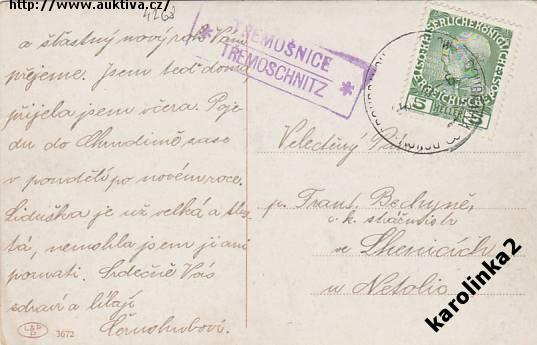 http://www.auktiva.cz/
4268
* TŘEMOŠNICE
TŘEMOSCHNITZ *
a šťastný nový rok Vám
přejeme. Jsem teď doma
přijela jsem včera. Poje-
du do Chrudimě zase
v pondělí po novém roce.
Liduška je už velká a tlus-
tá, nemohla jsem ji ani
poznati. Srdečně Vás
zdraví a líbají
Černohubovi.
Velectěný Pán
p. Frant. Bechyně,
c. k. strážmistr
ve Lhenicích
u Netolic
5 HELLER 5
L&P
P
3672
karolinka2